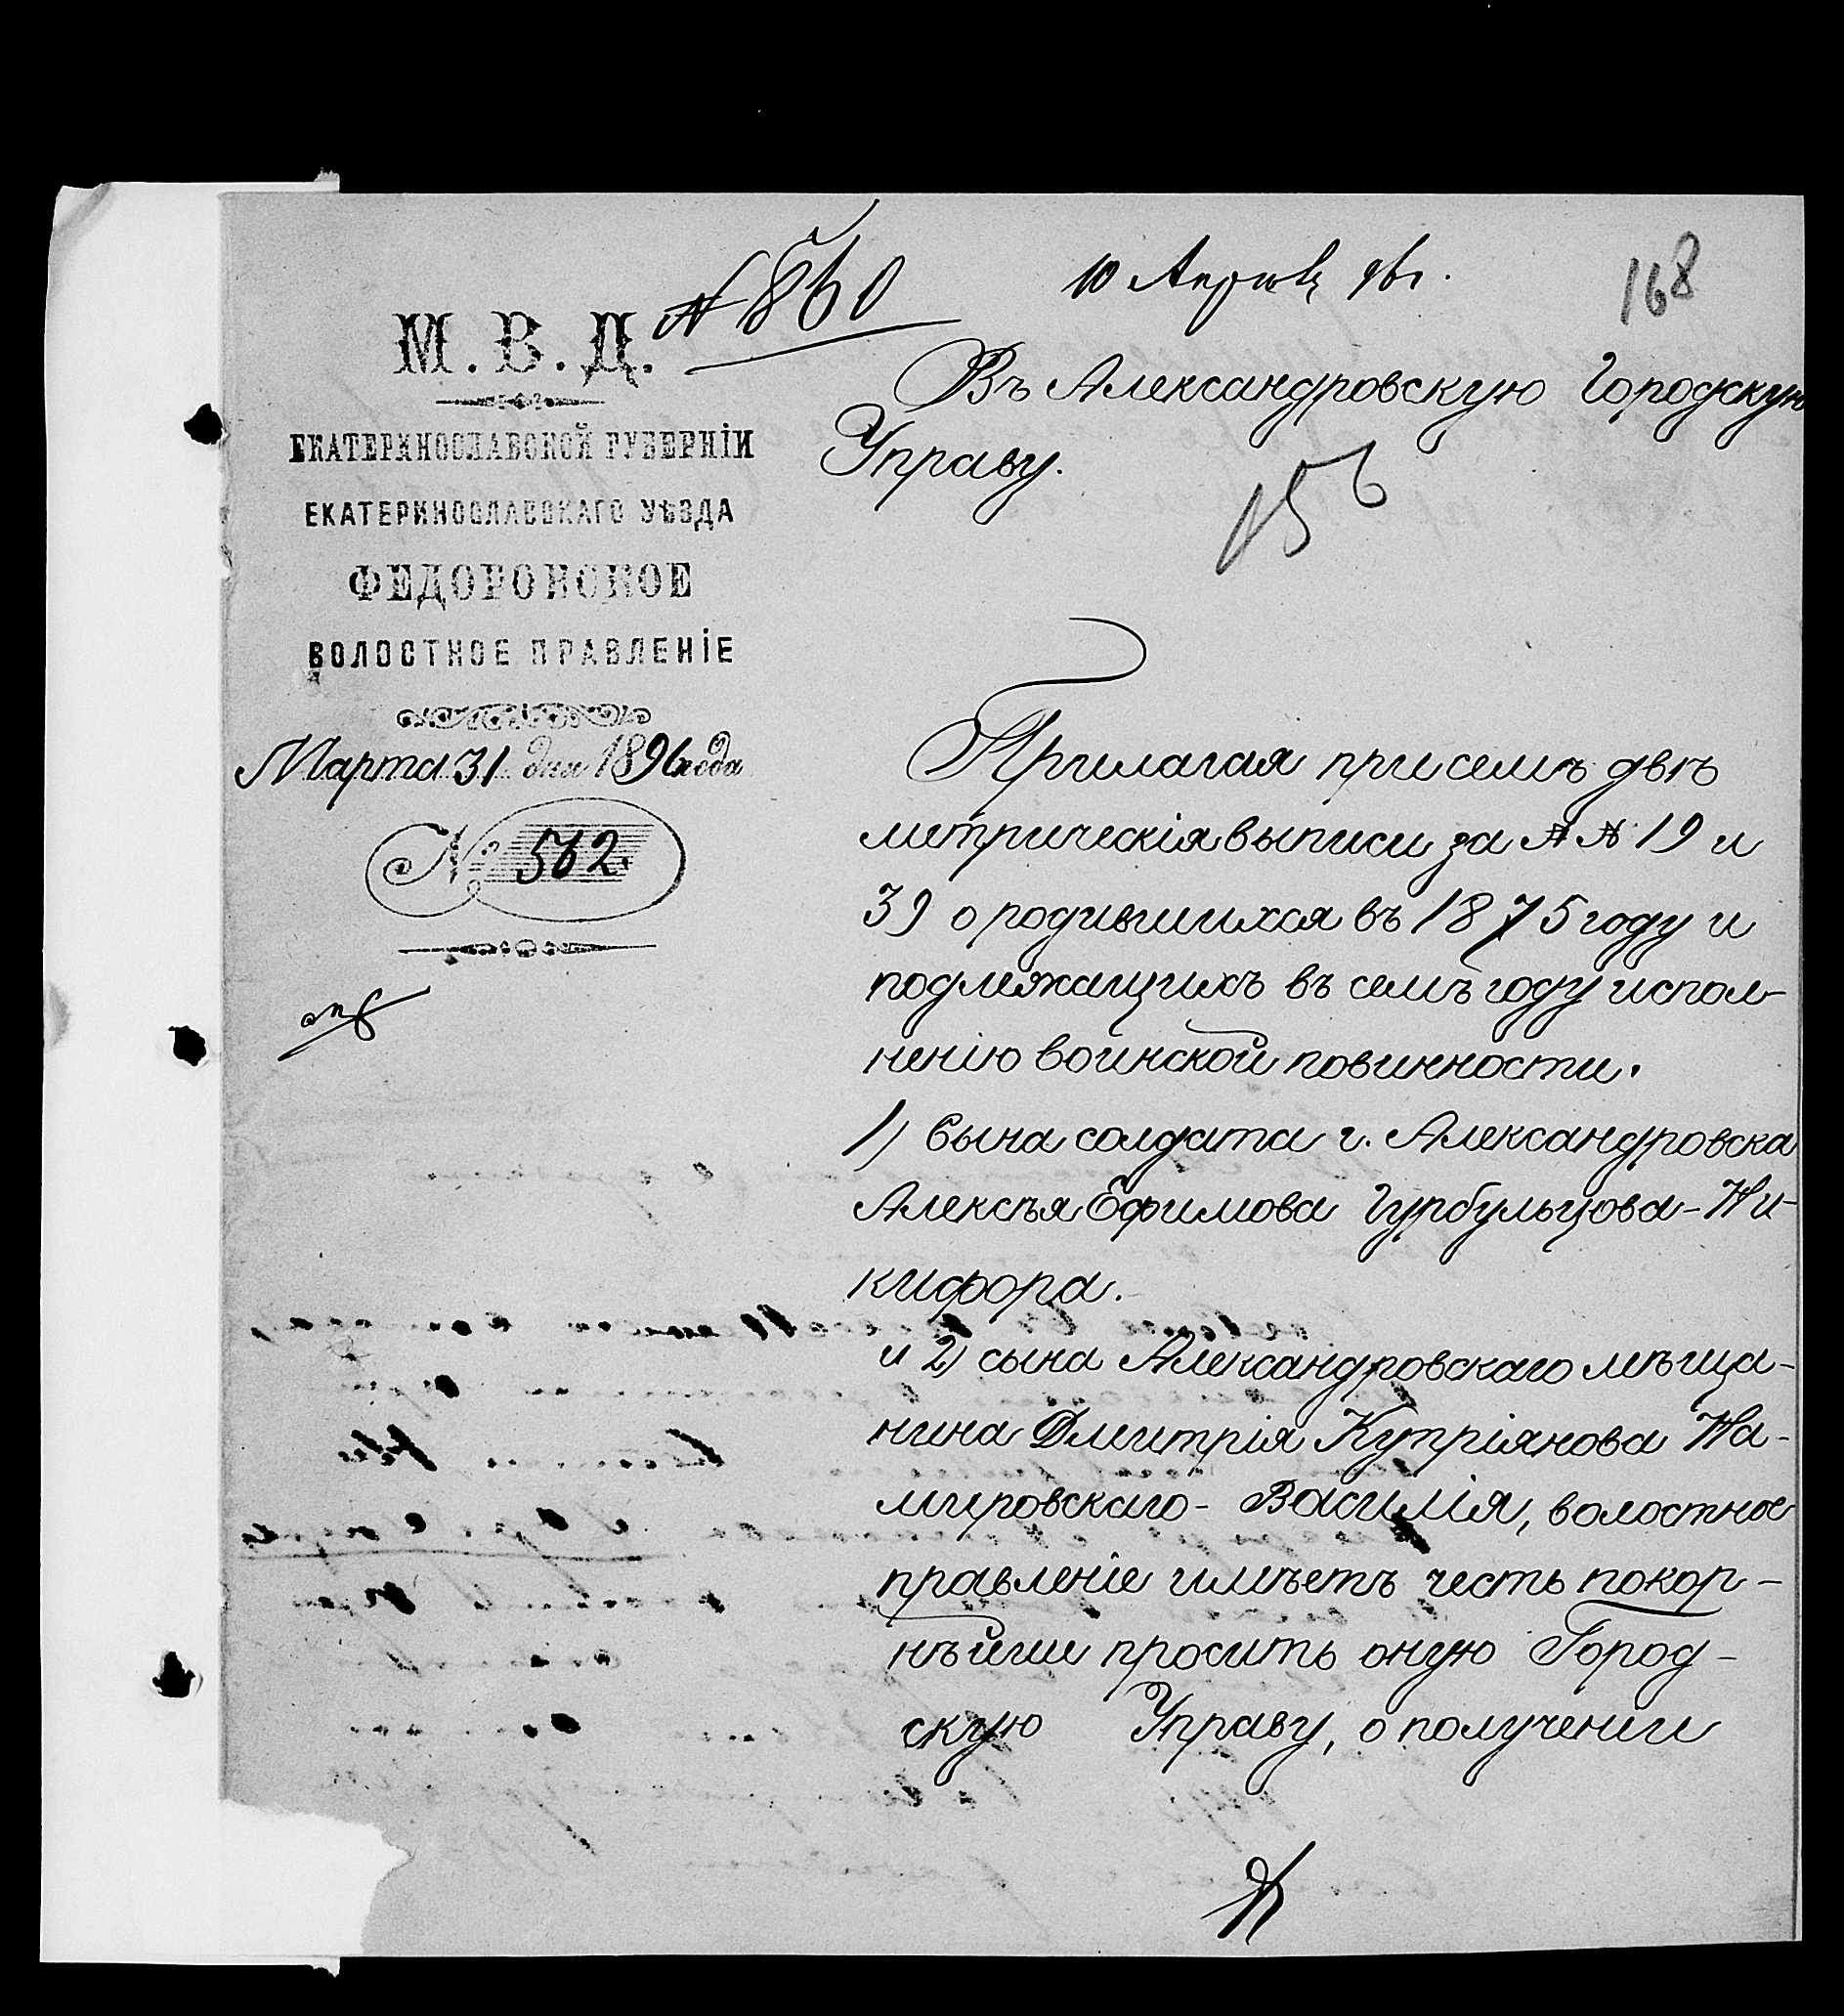 № 860
10 Апрѣля 96 г.
168
М. В. Д.
ЕКАТЕРИНОСЛАВСКОЙ ГУБЕРНІИ
ЕКАТЕРИНОСЛАВСКАГО УѢЗДА
ФЕДОРОВСКОЕ
ВОЛОСТНОЕ ПРАВЛЕНІЕ
Марта 31 дня 1896 года
№ 562.
Въ Александровскую Городскую
Управу.
156
Прилагая при семъ двѣ
метрическія выписи за №№ 19 и
39 о родившихся въ 1875 году и
подлежащихъ въ семъ году испол-
ненію воинской повинности.
1) Сына солдата г. Александровска
Алексѣя Ефимова Гурбульцова - Ни-
кифора.
и 2) сына Александровскаго мѣща-
нина Дмитрія Купріянова На-
мировскаго - Василія, волостное
правленіе имѣетъ честь покор-
нѣйше просить оную Город-
скую Управу, о полученіи